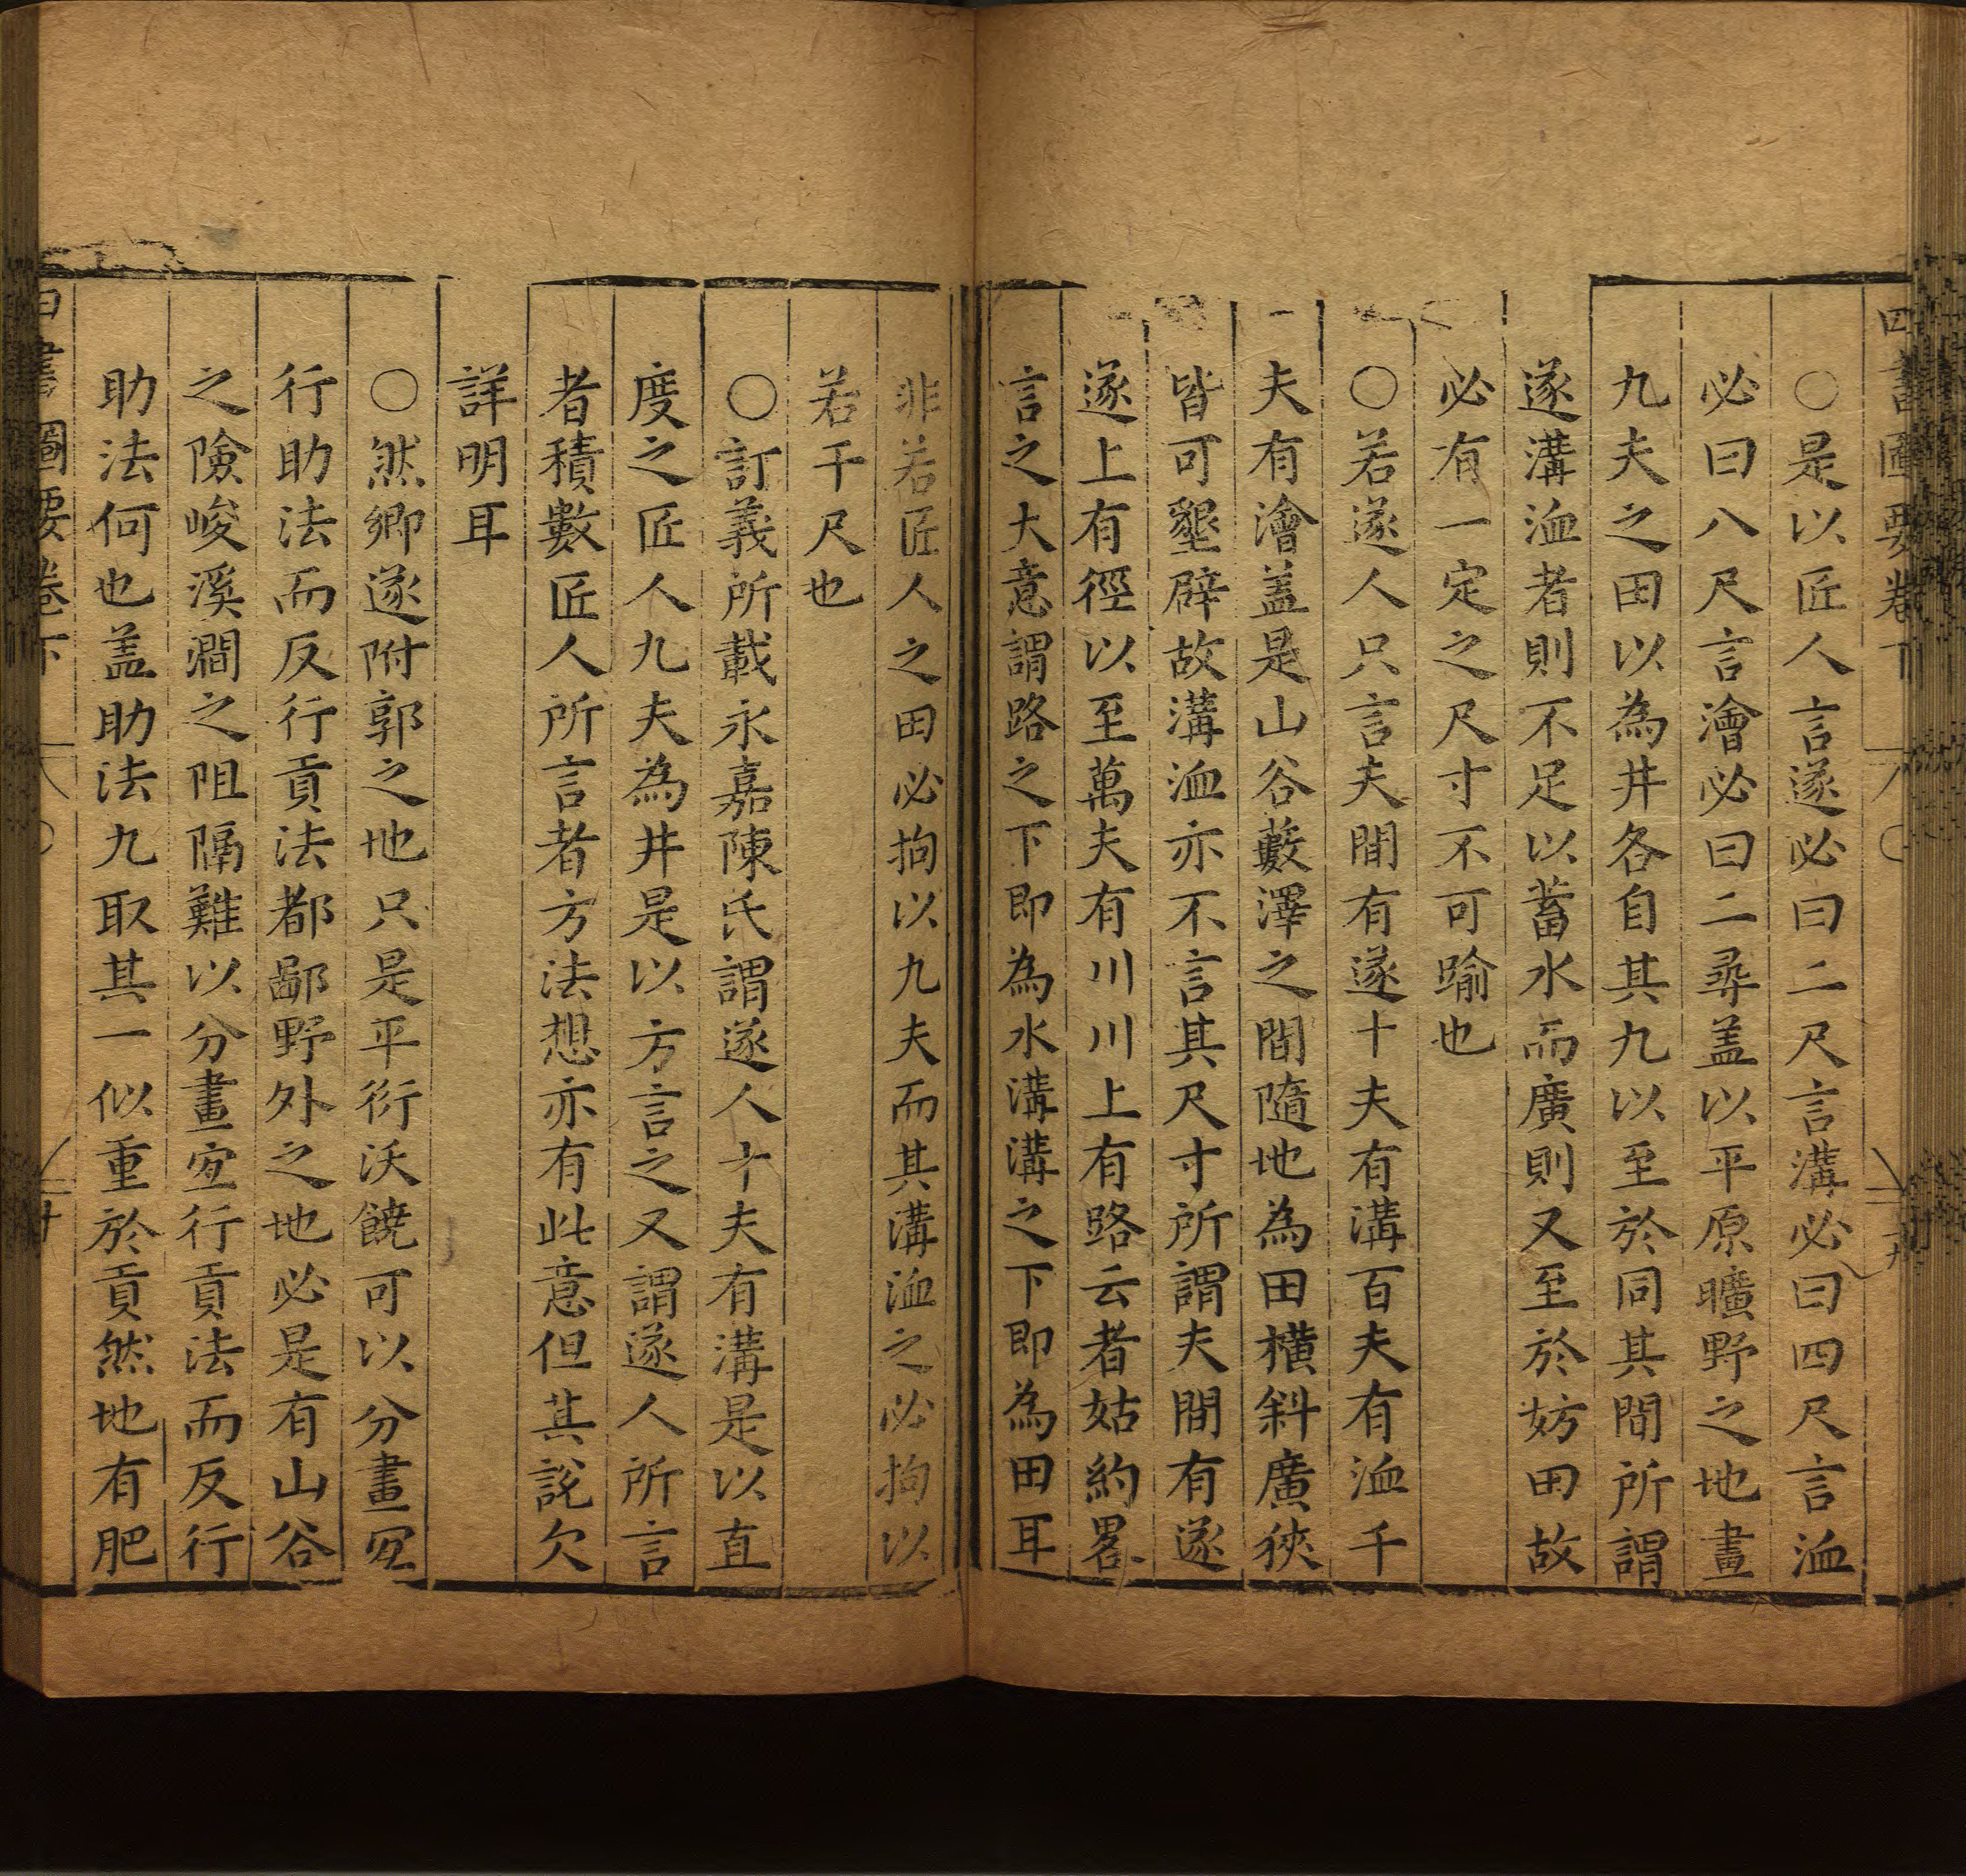 四書圖要卷下
○是以匠人言遂必曰二尺言溝必曰四尺言洫
必曰八尺言澮必曰二尋盖以平原曠野之地畫
九夫之田以為井各自其九以至於同其間所謂
遂溝洫者則不足以蓄水而廣則又至於妨田故
必有一定之尺寸不可踰也
○若遂人只言夫間有遂十夫有溝百夫有洫千
夫有澮盖是山谷藪澤之間隨地為田橫斜廣狹
皆可墾辟故溝洫亦不言其尺寸所謂夫間有遂
遂上有徑以至萬夫有川川上有路云者姑約畧
言之大意謂路之下即為水溝溝之下即為田耳
非若匠人之田必拘以九夫而其溝洫之必拘以
若干尺也
○訂義所載永嘉陳氏謂遂人十夫有溝是以直
度之匠人九夫為井是以方言之又謂遂人所言
者積數匠人所言者方法想亦有此意但其說欠
詳明耳
○然鄉遂附郭之地只是平衍沃饒可以分畫宜
行助法而反行貢法都鄙野外之地必是有山谷
之險峻溪澗之阻隔難以分畫宜行貢法而反行
助法何也盖助法九取其一似重於貢然地有肥
四書圖要卷下